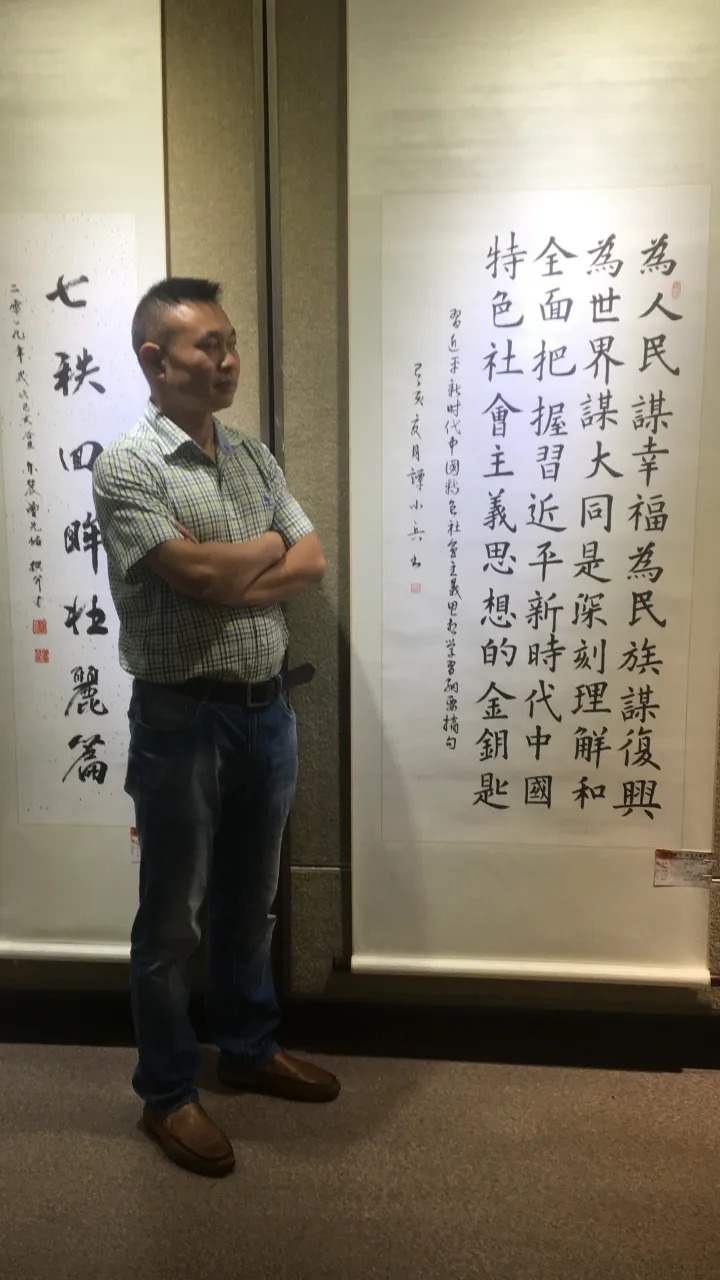 為人民謀幸福為民族謀復興
為世界謀大同是深刻理解和
全面把握習近平新時代中國
特色社會主義思想的金鑰匙
習近平新时代中國特色社会主義思想学習纲要摘句
己亥夏月譚小兵书
七秩回眸壮麗篇
二零一九年